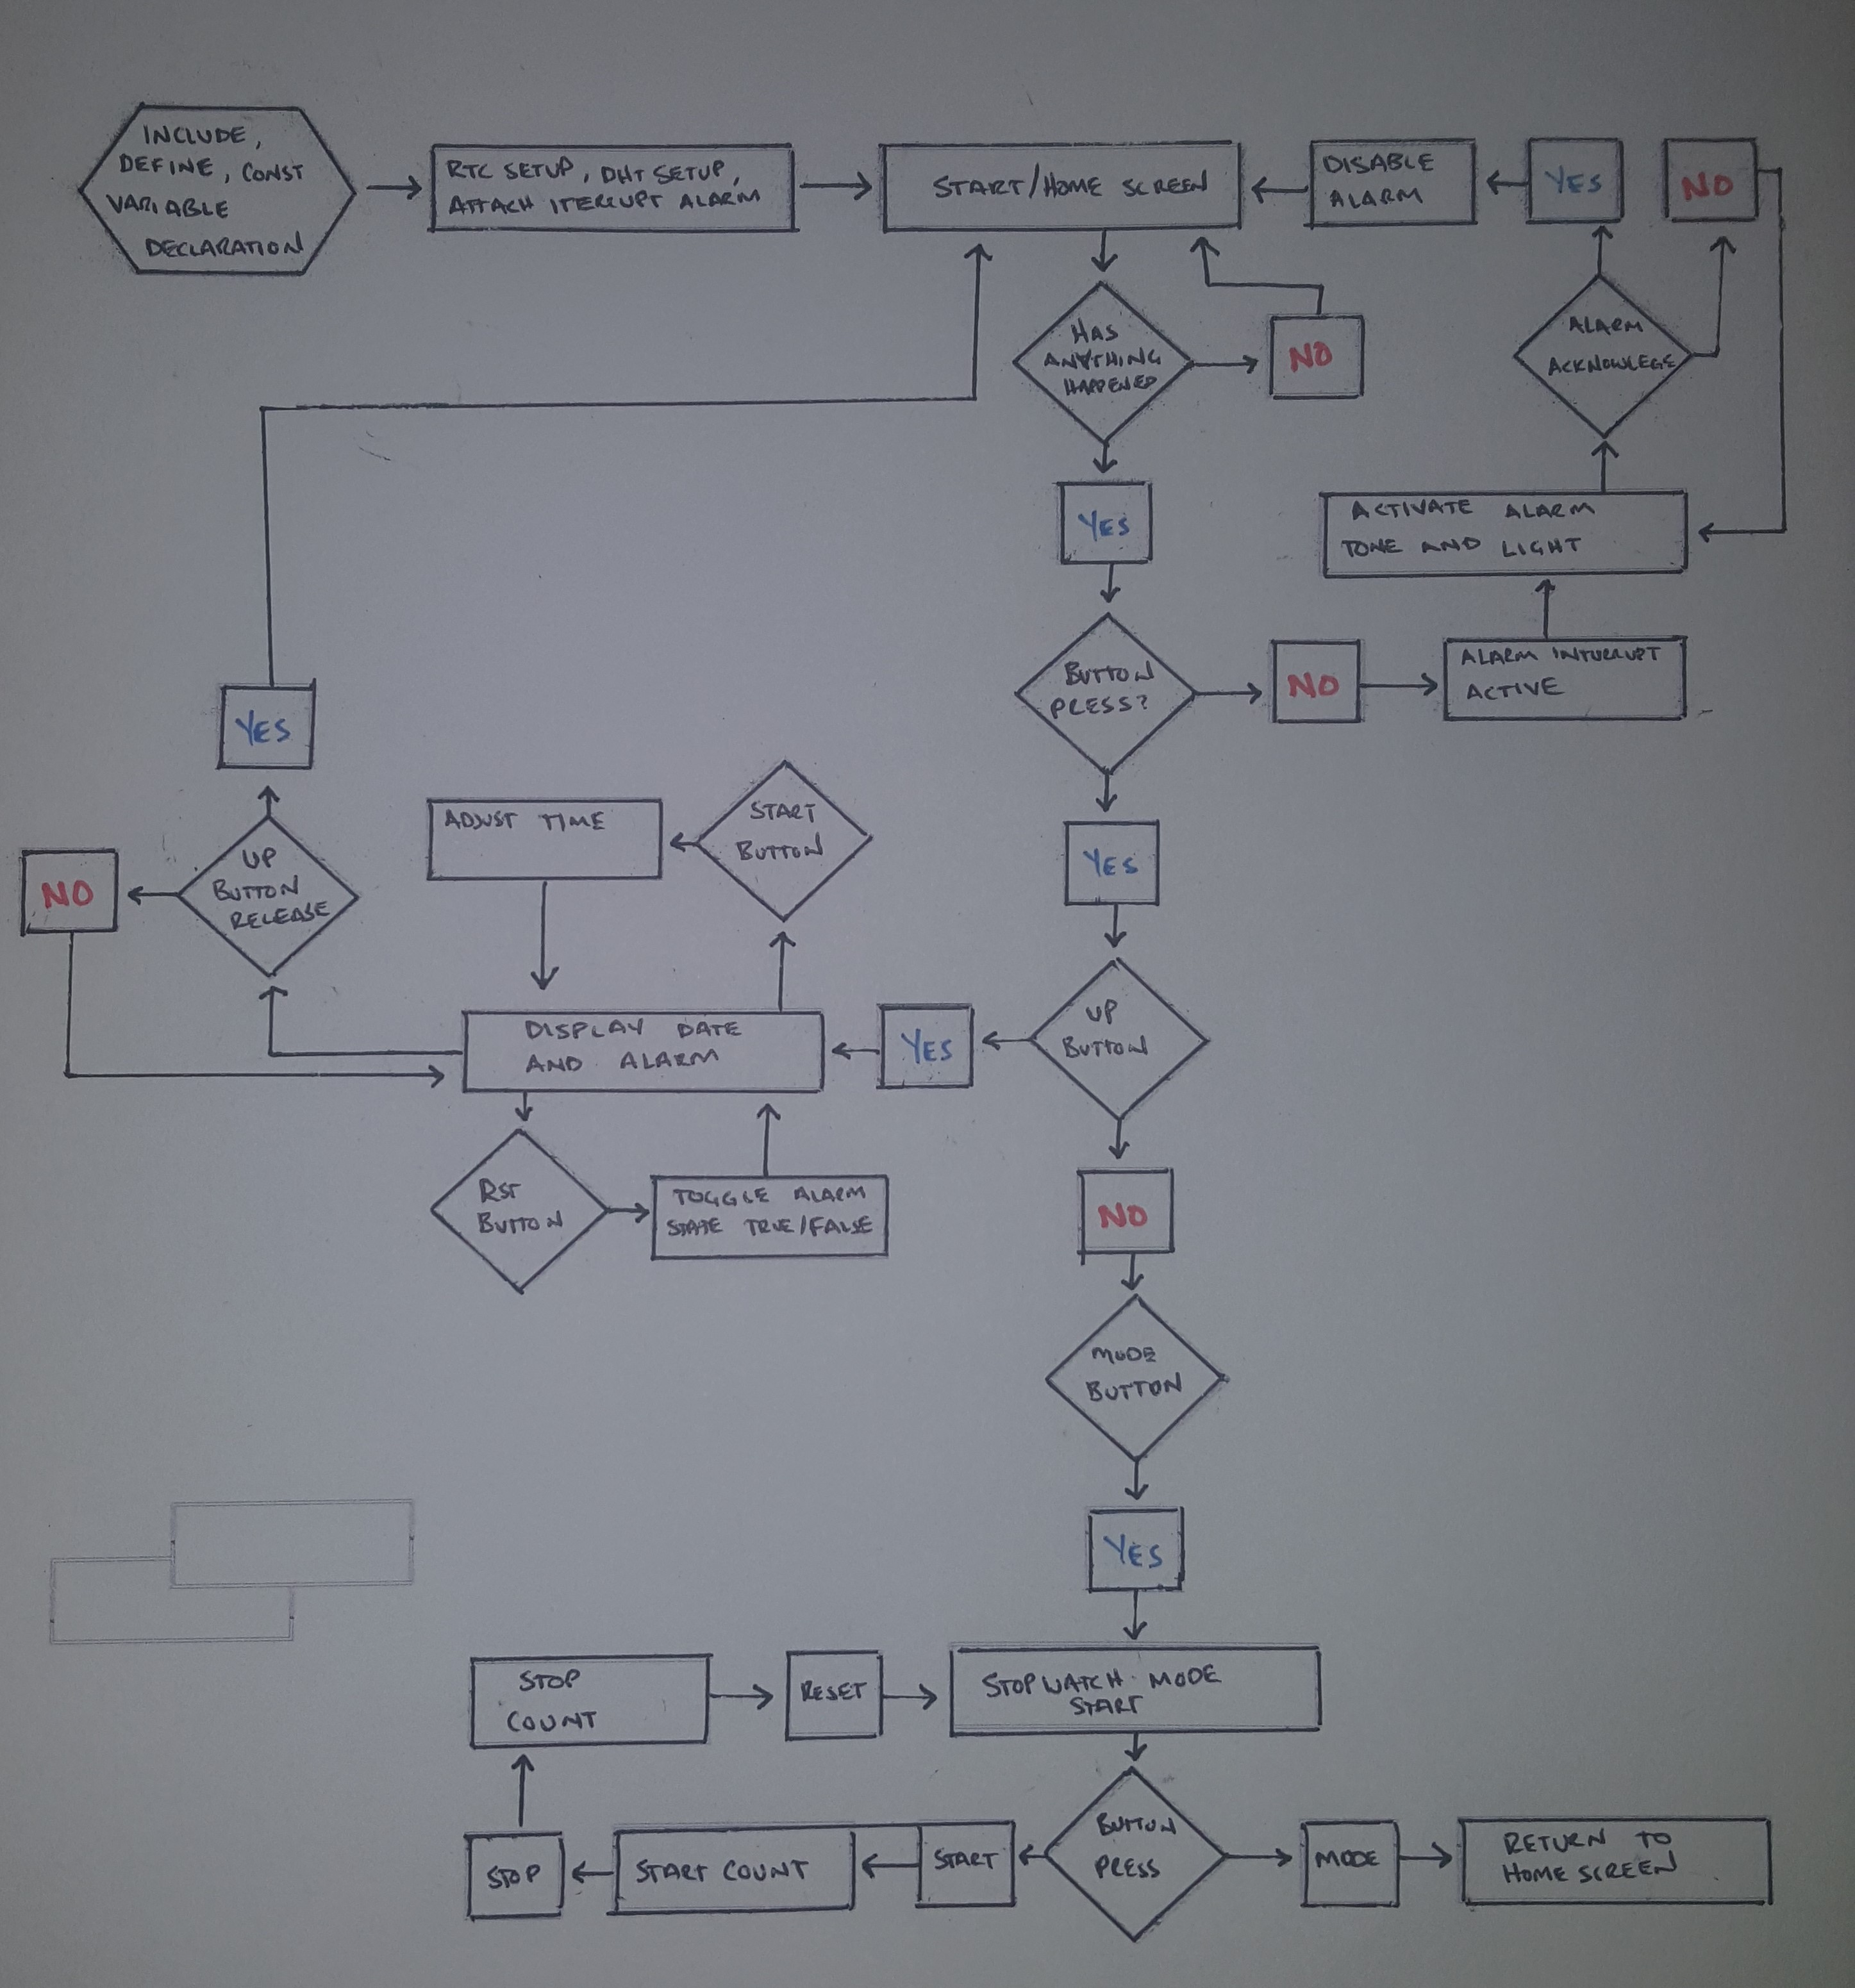 INCLUDE,
DEFINE, CONST
VARIABLE
DECLARATION
RTC SETUP, DHT SETUP,
ATTACH ITERRUPT ALARM
START/HOME SCREEN
DISABLE
ALARM
YES
NO
HAS
ANYTHING
HAPPENED
NO
ALARM
ACKNOWLEGE
YES
ACTIVATE ALARM
TONE AND LIGHT
BUTTON
PRESS?
NO
ALARM INTURRUPT
ACTIVE
YES
YES
UP
BUTTON
RELEASE
NO
ADJUST TIME
START
BUTTON
YES
UP
BUTTON
YES
DISPLAY DATE
AND ALARM
RST
BUTTON
TOGGLE ALARM
STATE TRUE/FALSE
NO
MODE
BUTTON
YES
STOP
COUNT
RESET
STOPWATCH MODE
START
BUTTON
PRESS
START
START COUNT
STOP
MODE
RETURN TO
HOME SCREEN